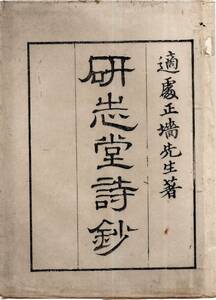 適處正墻先生著
研志堂詩鈔